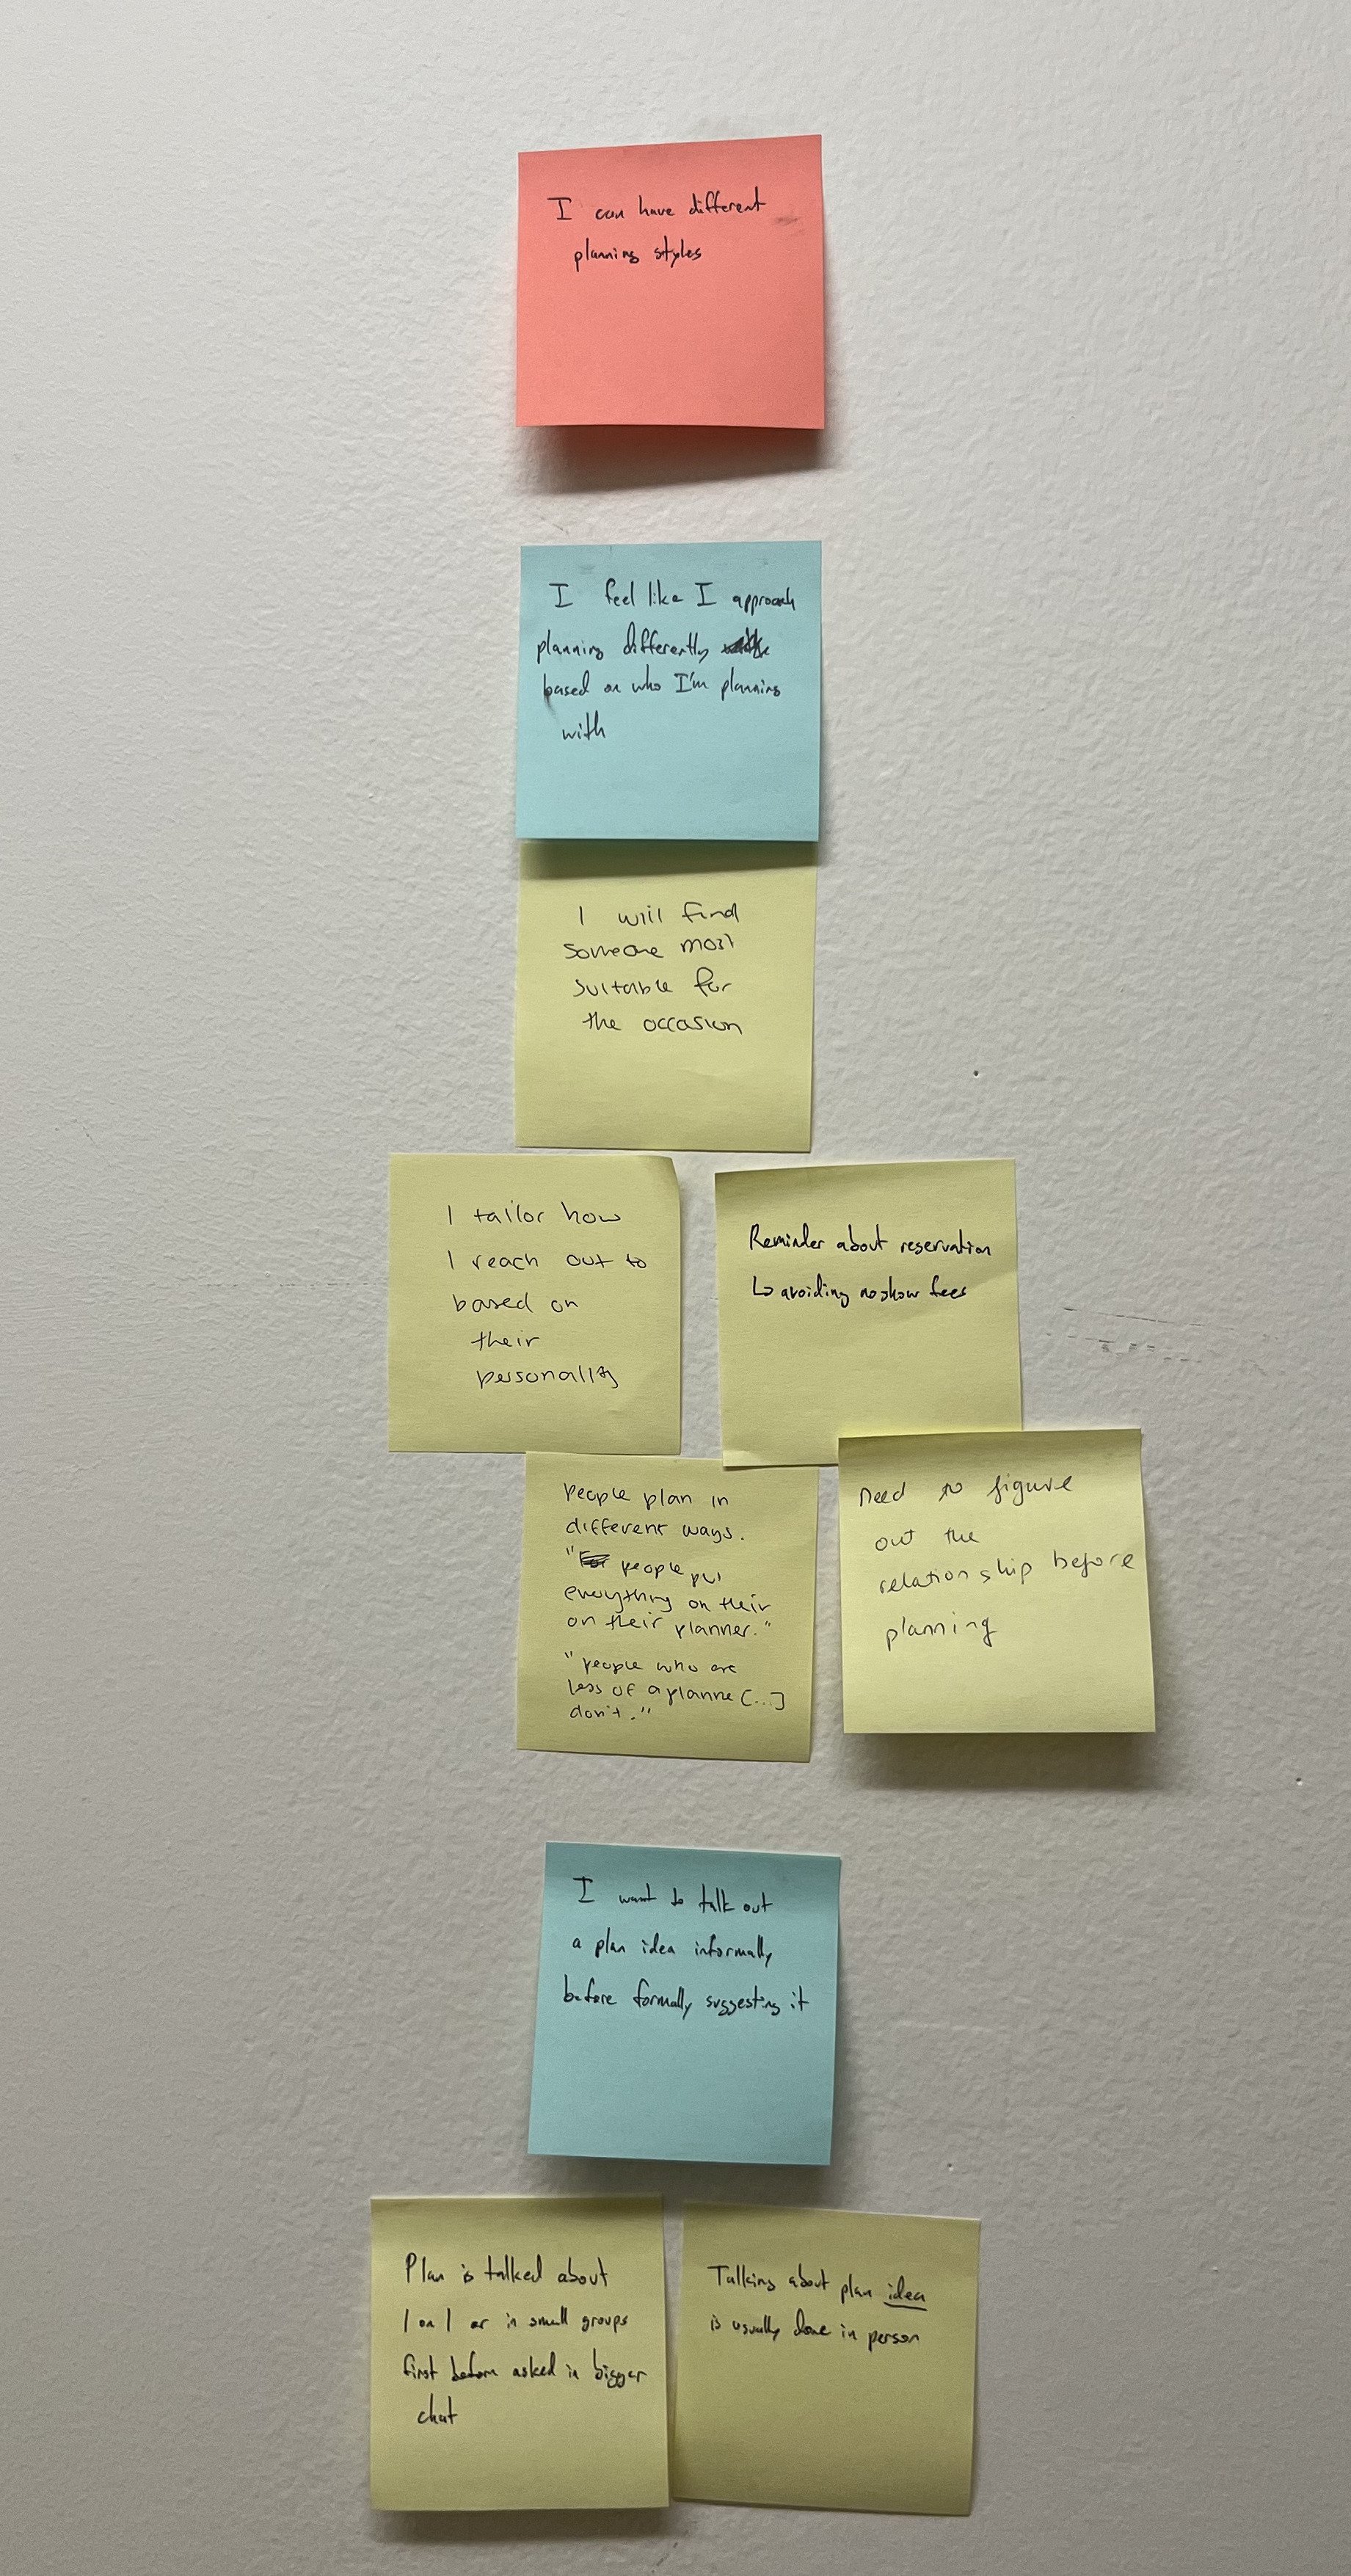 I can have different
planning styles
I feel like I approach
planning differently
based on who I'm planning
with
I will find
someone most
suitable for
the occasion
I tailor how
I reach out to
based on
their
personality
Reminder about reservation
↳ avoiding noshow fees
people plan in
different ways.
" people put
everything on their
on their planner."
"people who are
less of a planne [...]
don't."
need to figure
out the
relationship before
planning
I want to talk out
a plan idea informally
before formally suggesting it
Plan is talked about
1 on 1 or in small groups
first before asked in bigger
chat
Talking about plan idea
is usually done in person